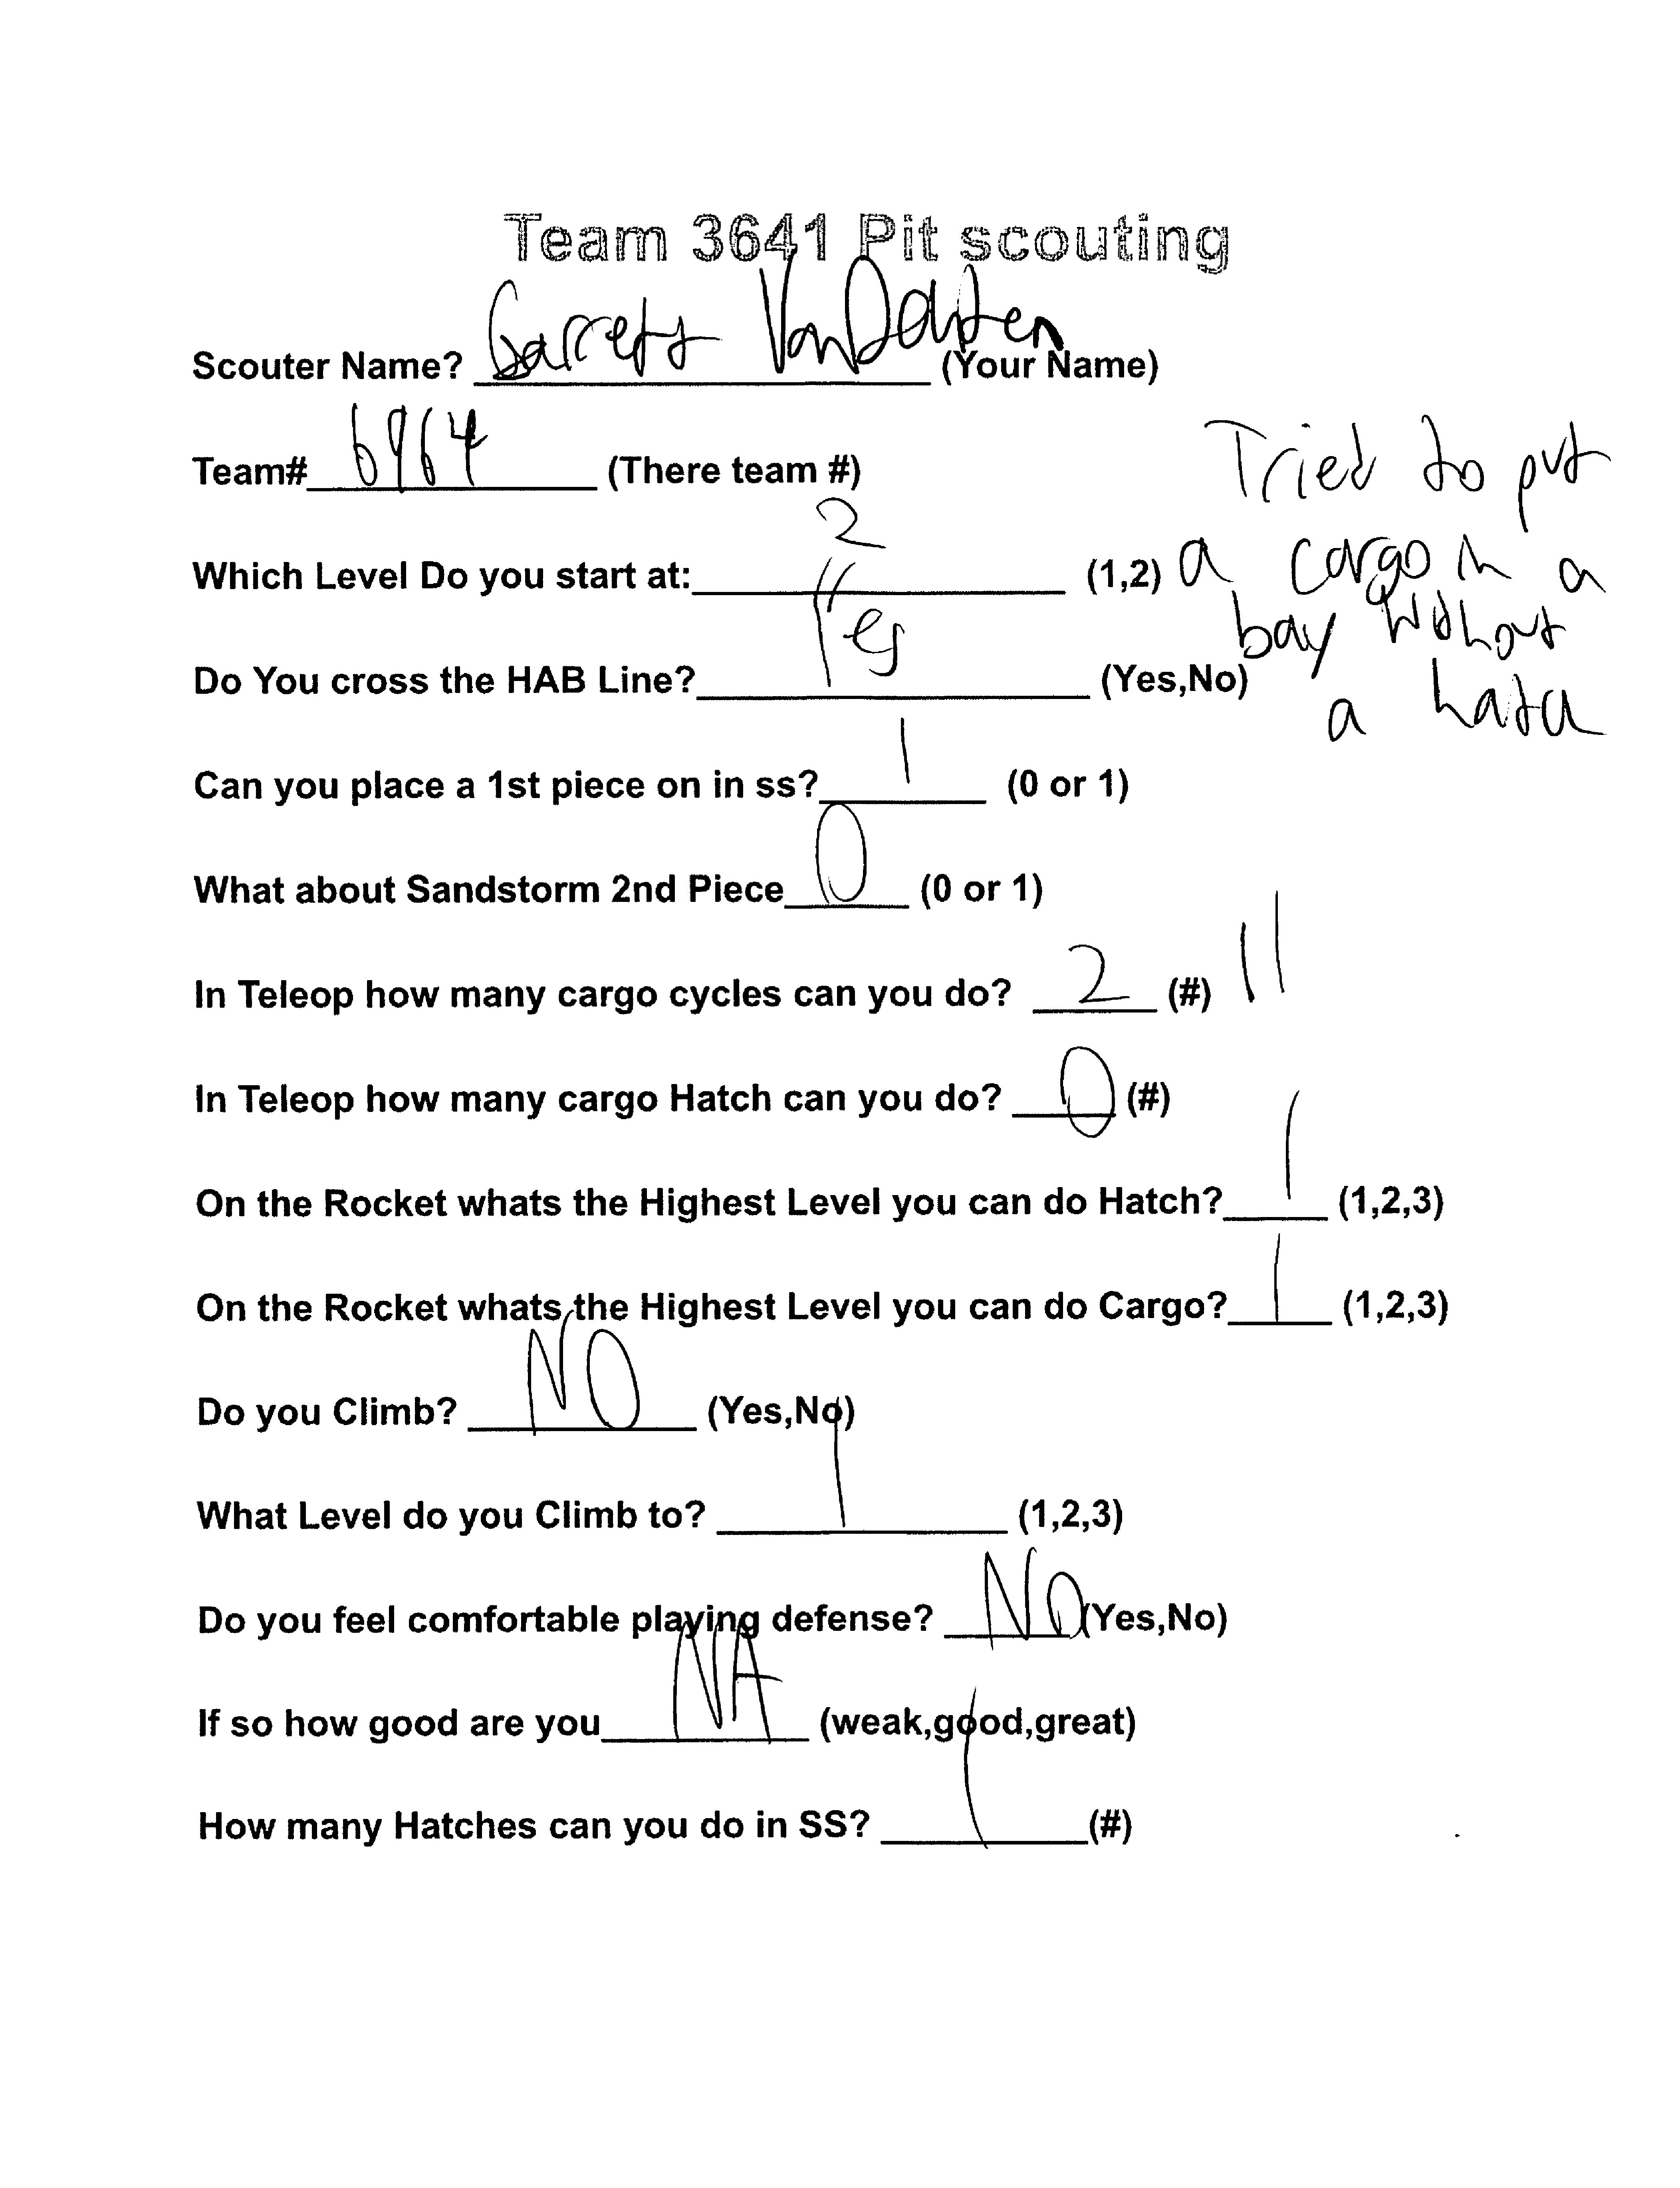 Team 3641 Pit scouting
Scouter Name? Garrett (Your Name)
Team# 6964 (There team #)
Which Level Do you start at: 2 (1,2)
Do You cross the HAB Line? Yes (Yes,No)
Tried to put
a cargo in a
bay without
a hatch
Can you place a 1st piece on in ss? 1 (0 or 1)
What about Sandstorm 2nd Piece 0 (0 or 1)
In Teleop how many cargo cycles can you do? 2 (#) 11
In Teleop how many cargo Hatch can you do? 0 (#)
On the Rocket whats the Highest Level you can do Hatch? 1 (1,2,3)
On the Rocket whats the Highest Level you can do Cargo? 1 (1,2,3)
Do you Climb? NO (Yes,No)
What Level do you Climb to? 1 (1,2,3)
Do you feel comfortable playing defense? No (Yes,No)
If so how good are you NA (weak,good,great)
How many Hatches can you do in SS? 1 (#)